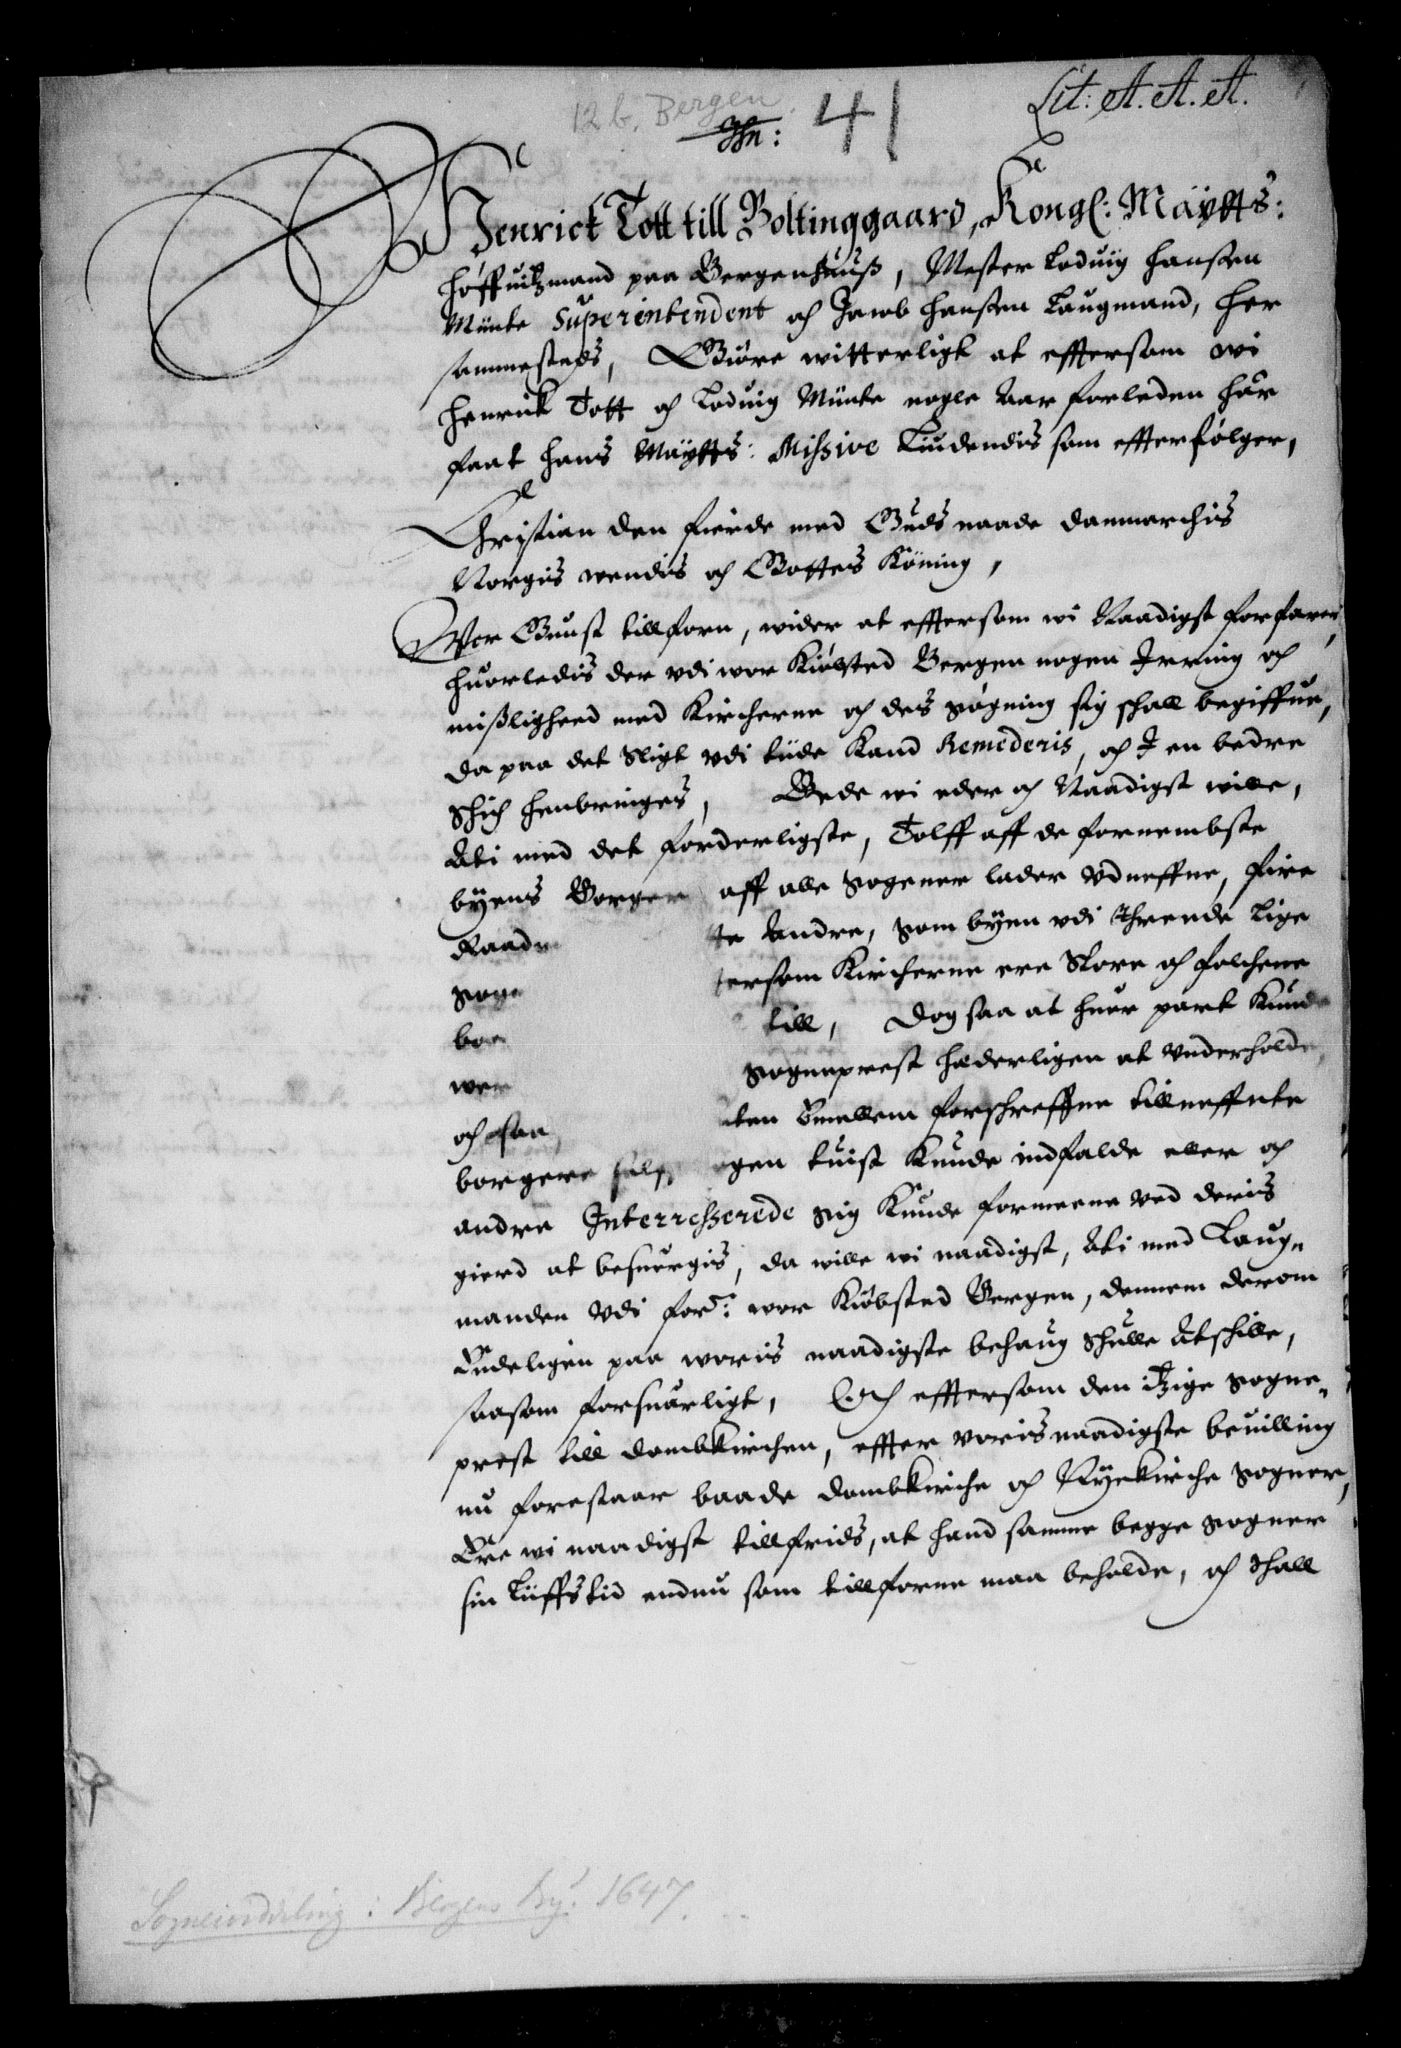 Lit: A. A. A.
12 b. Bergen
41
Henrick Tott till Boltinggaard, Kongl: Maÿtts:
høffuitzmand paa Bergenhuuß, Mester Loduig Hanssen
Münte Superintendent och Jacob Hanssen Laugmand, her
sammesteds, Giøre witterligt at efftersom wi
Henrick Tott och Loduig Münte nogle Aar forleden har
faat hans Maÿtts: Missive Liudendis som effterfølger,
Christian den fierde med Guds naade Danmarchis
Norgis wendis och Gottes Konning,
Wor Gunst tillforn, wider at efftersom wi Naadigst forfarer,
huorledis der vdi wor Kiøbsted Bergen nogen Irring och
mißligheed med Kircherne och des søgning sig schall begiffue,
da paa det Sligt vdi tiide Kand Remederis, och I en bedre
Schich henbringes, Bede wi eder och Naadigst wille,
Ati med det forderligste, Tolff aff de fornembste
byens Borger aff alle Sogener lader vdneffne, fire
Raad te Andre, som byen vdi thrende Lige
Sog tersom Kircherne ere Store och folchene
boe till, Dog saa at huer part Kunde
wer Sogneprest hæderligen at vnderholde,
och saa ten Emellem forschreffne tillneffnte
borgere selff ogen tuist Kunde indfalde eller och
andre Interresserede sig Kunde formeene ved deris
gierd at besuergis, da wille wi naadigst, Ati med Laug-
manden vdi for: wor Kiøbsted Bergen, dennem derom
Endeligen paa woris naadigste behaug Schulle Atschille,
saasom forsuarligt, Och efftersom den itzige Sogne-
prest till Dombkirchen, effter voris naadigste beuilling
nu forestaar baade Dombkirche och Nyekirche Sogner,
Ere wi naadigst tillfrids, at hand samme begge Sogner
sin Liiffs tid endnu som tillforne maa beholde, och schall
Sogneinddeling i Bergens By. 1647.